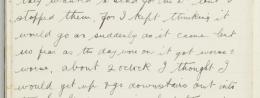 stopped them, for I kept thinking it
would go as suddenly as it came but
so far as the day wore on it got worse &
worse, about 2 oclock I thought I
would get up & go downstairs out into